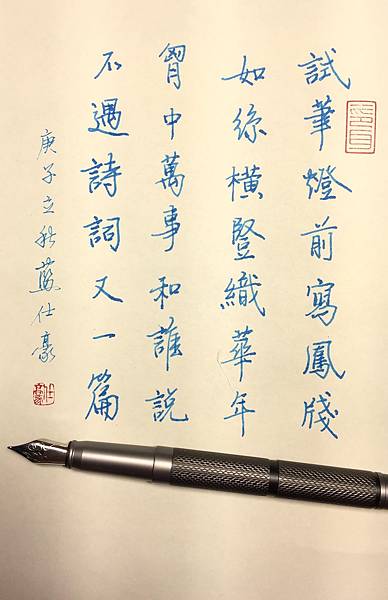 試筆燈前寫鳳牋
如絲橫豎織華年
胷中萬事和誰說
不過詩詞又一篇
庚子立秋蘇仕豪